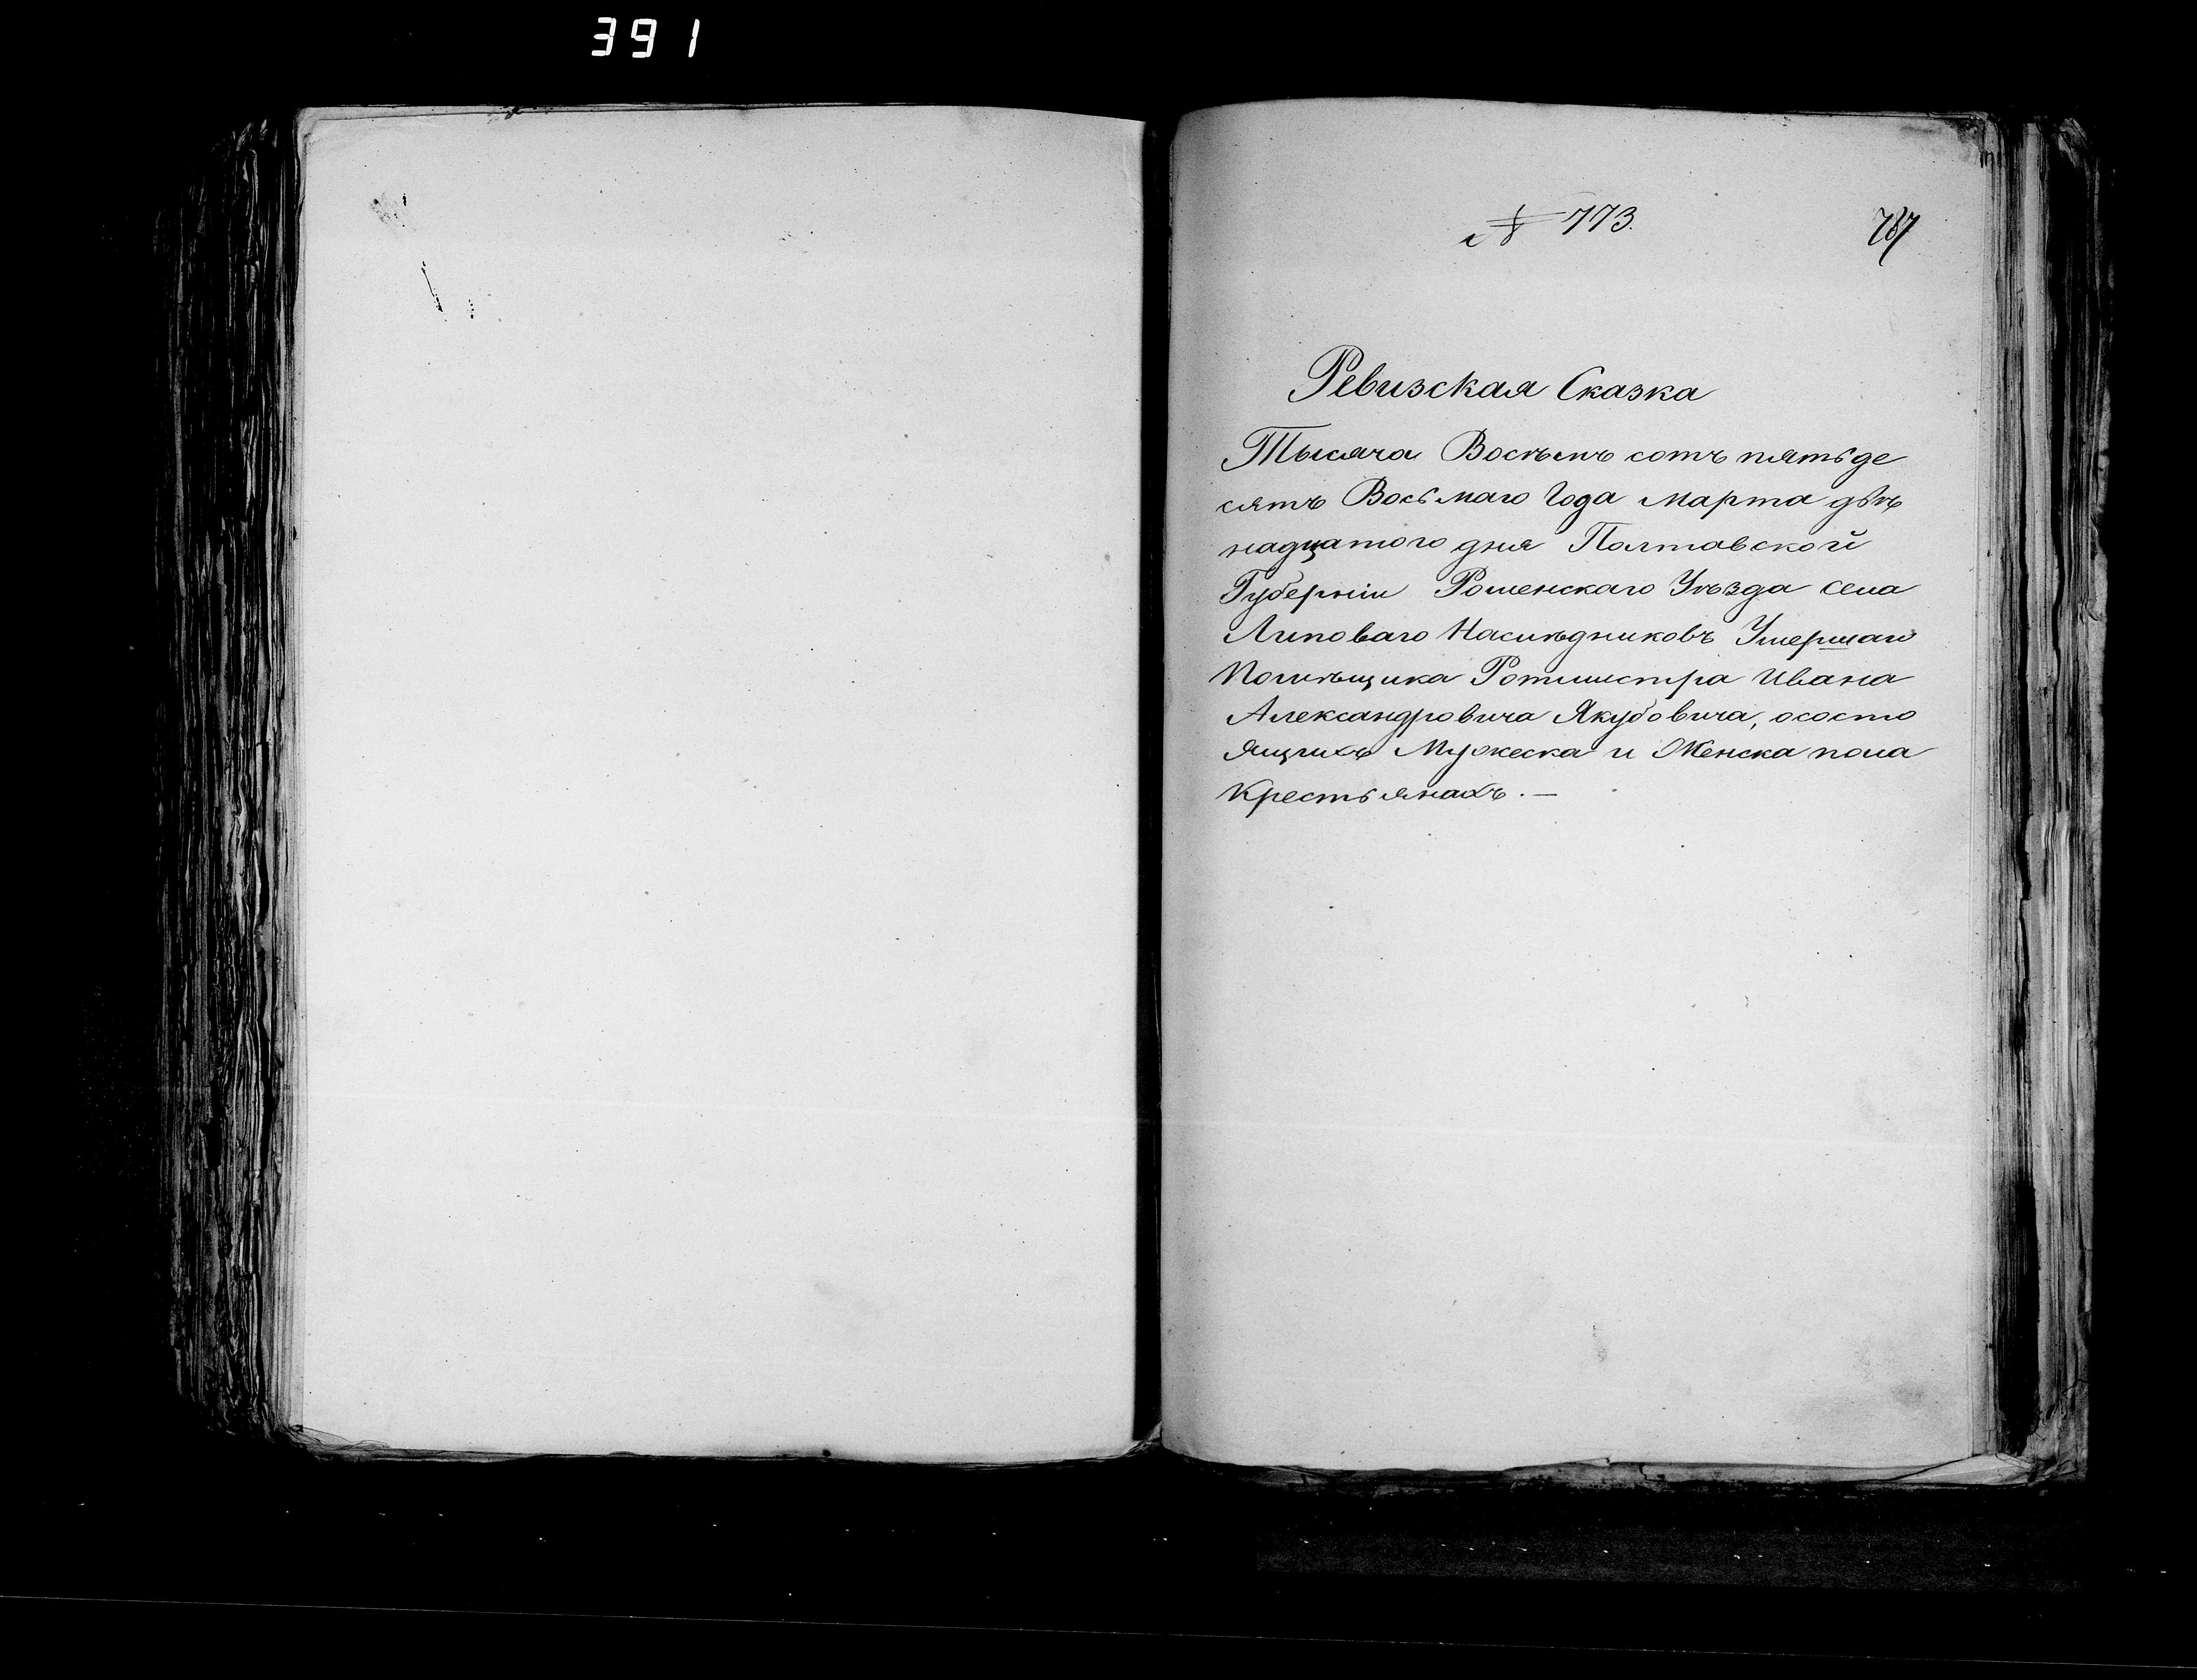 391
№ 773.
Ревизская Сказка
Тысяча Восѣмъ сотъ пятьде
сятъ Восьмаго Года Марта двѣ
надцатого дня Полтавской
Губерніи Роменскаго Уѣзда села
Липоваго Наслѣдниковъ Умершаго
Помѣщика Ротмистра Ивана
Александровича Якубовича, осостο
ящихъ Мужеска и Женска пола
Крестьянахъ. —